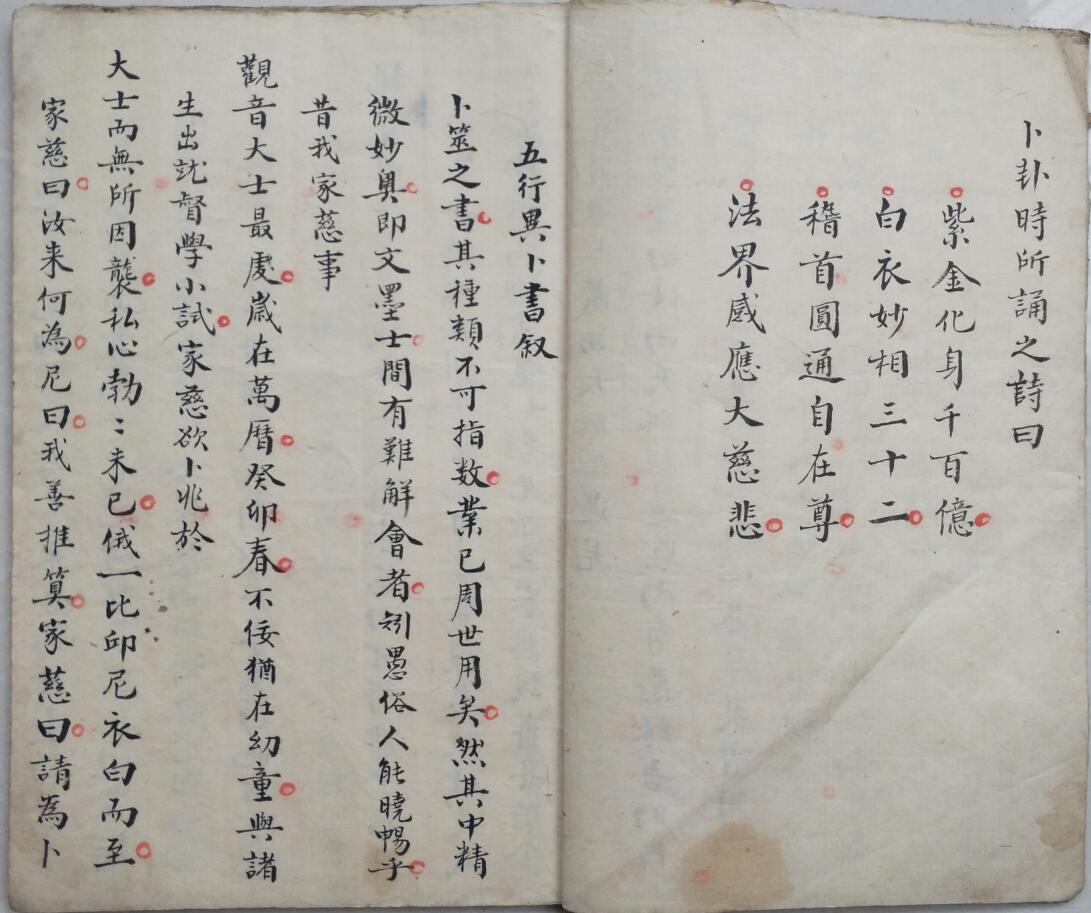 卜卦時所誦之詩曰
紫金化身千百億
白衣妙相三十二
稽首圓通自在尊
法界感應大慈悲
五行異卜書叙
卜筮之書其種類不可指数業已周世用矣然其中精
微妙奥即文墨士間有難解會者矧愚俗人能曉暢乎
昔我家慈事
觀音大士最處歲在萬曆癸卯春不佞猶在幼童與諸
生出就督學小試家慈欲卜兆於
大士而無所因襲私心勃〻未已俄一比邱尼衣白而至
家慈曰汝来何為尼曰我善推算家慈曰請為卜